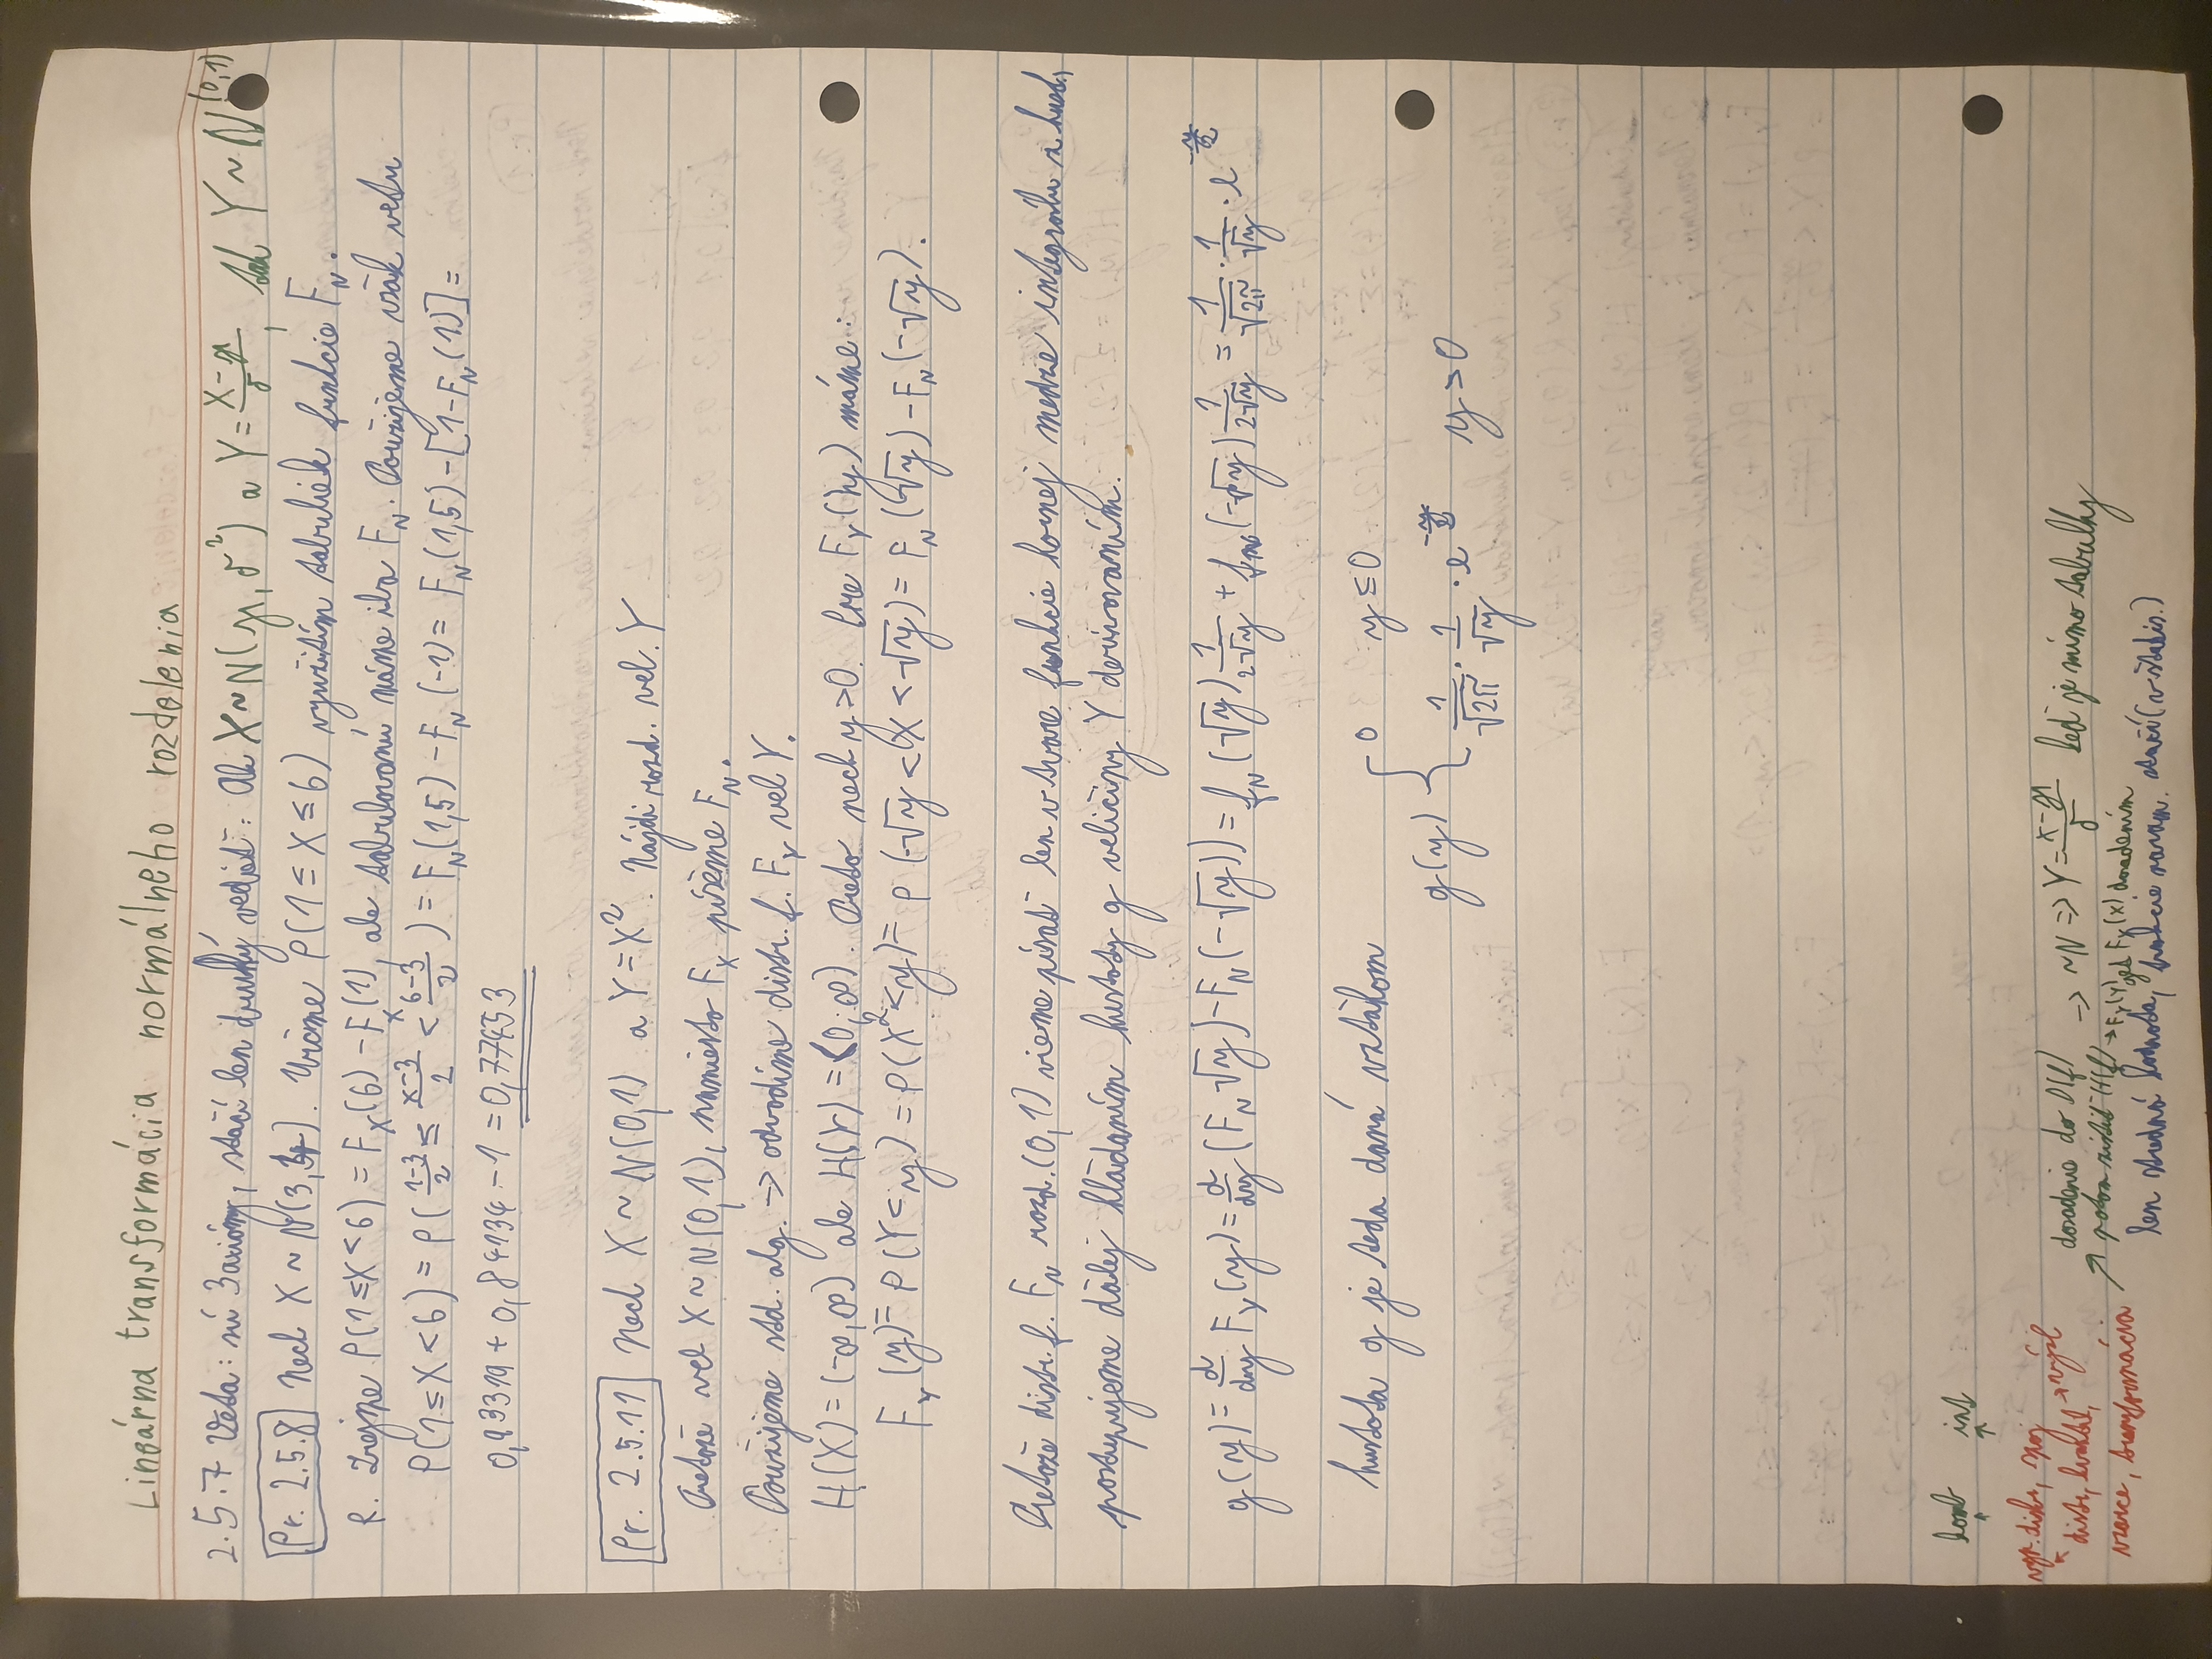 Lineárna transformácia normálneho rozdelenia
2.5.7 Veta: sú 3 axiómy, stačí len druhý vedieť: Ak X ~ N(μ, σ²) a Y = (X-μ)/σ, tak Y ~ N(0,1)
Pr. 2.5.8 Nech X ~ N(3, ). Určme P(1 ≤ X ≤ 6) využitím tabuliek funkcie F_N.
R. Zrejme P(1 ≤ X < 6) = F_X(6) - F_X(1), ale tabulovanú máme iba F_N. Použijeme však vetu
P(1 ≤ X < 6) = P((1-3)/2 ≤ (x-3)/2 < (6-3)/2) = F_N(1,5) - F_N(-1) = F_N(1,5) - [1 - F_N(1)] =
0,93319 + 0,84134 - 1 = 0,77453
Pr. 2.5.11 Nech X ~ N(0,1) a Y = X². Nájdi rozd. vel. Y
Pretože vel X ~ N(0,1), namiesto F_X píšeme F_N.
Použijeme std. alg. → odvodíme distr. f. F_Y vel Y.
H(X) = (-∞, ∞) ale H(Y) = <0; ∞). Preto nech y > 0. Pre F_Y(y) máme:
F_Y(y) = P(Y < y) = P(X² < y) = P(-√y < X < √y) = F_N(√y) - F_N(-√y).
Pretože distr. f. F_N rozd. (0,1) vieme písať len v tvare funkcie hornej medze integrálu z hust.,
postupujeme ďalej hľadaním hustoty g veličiny Y derivovaním.
g(y) = d/dy F_Y(y) = d/dy (F_N √y) - F_N(-√y)) = f_N(√y) 1/(2√y) + f_N(-√y) 1/(2√y) = 1/√2π · 1/√y · e^(-y/2)
hustota g je teda daná vzťahom
g(y) { 0 y ≤ 0
1/√2π · 1/√y · e^(-y/2) y > 0
komb int
↑ ↑
vyp. distr, spoj
distr, kvantil, → výsl
vzorce, transformácia
dosadenie do D(f) → ~N => Y = (X-μ)/σ keď je mimo tabuľky
potom zistiť H(f) → F_Y(Y) get F_X(X) dosadením
len stredná hodnota, funkcie stačí (v štatis.)